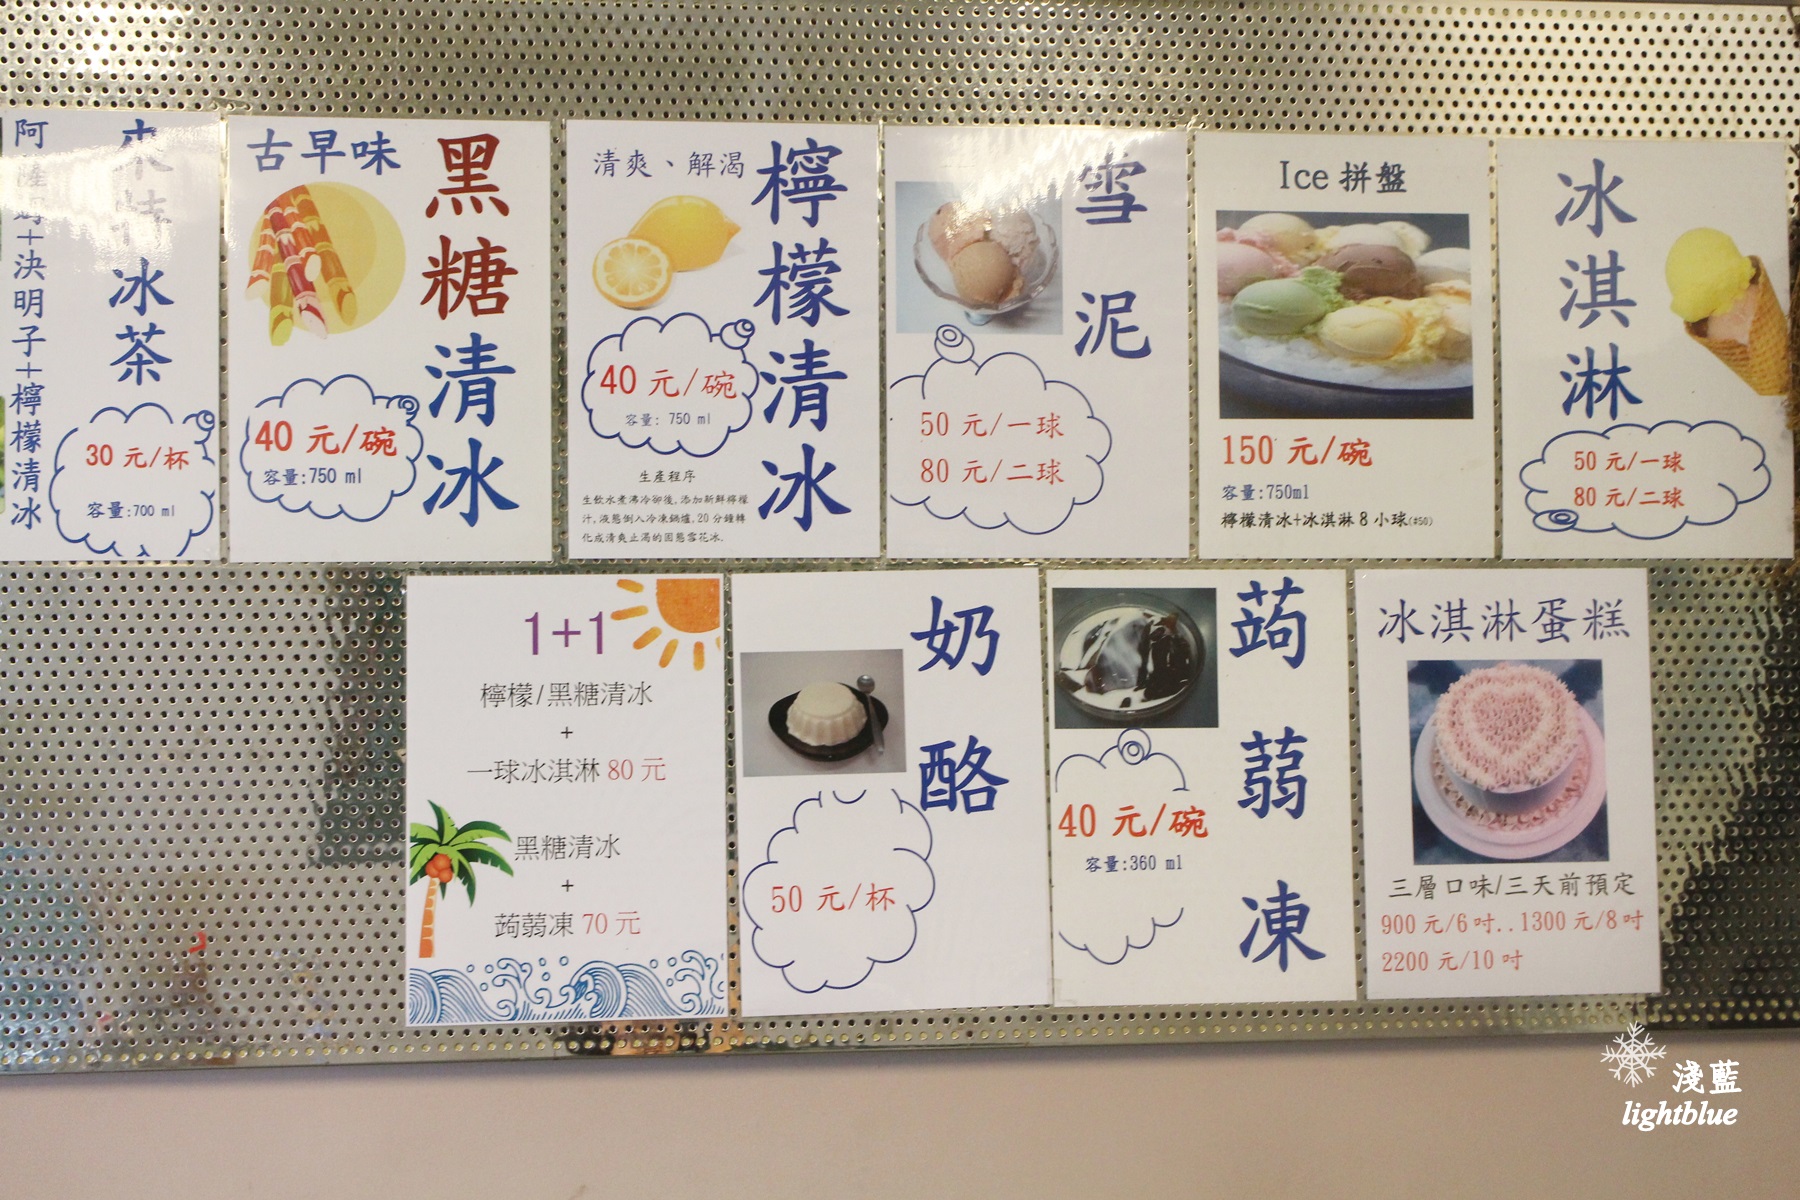 阿薩姆+決明子+檸檬清冰
冰茶
30 元/杯
容量:700 ml
古早味
黑糖清冰
40 元/碗
容量:750 ml
清爽、解渴
檸檬清冰
40 元/碗
容量: 750 ml
生產程序
生飲水煮沸冷卻後,添加新鮮檸檬
汁,液態倒入冷凍鍋爐,20分鐘轉
化成清爽止渴的固態雪花冰.
雪泥
50 元/一球
80 元/二球
Ice 拼盤
150 元/碗
容量:750ml
檸檬清冰+冰淇淋 8 小球(#50)
冰淇淋
50 元/一球
80 元/二球
1+1
檸檬/黑糖清冰
+
一球冰淇淋 80 元
黑糖清冰
+
蒟蒻凍 70 元
奶酪
50 元/杯
蒟蒻凍
40 元/碗
容量:360 ml
冰淇淋蛋糕
三層口味/三天前預定
900 元/6 吋..1300 元/8 吋
2200 元/10 吋
淺藍
lightblue